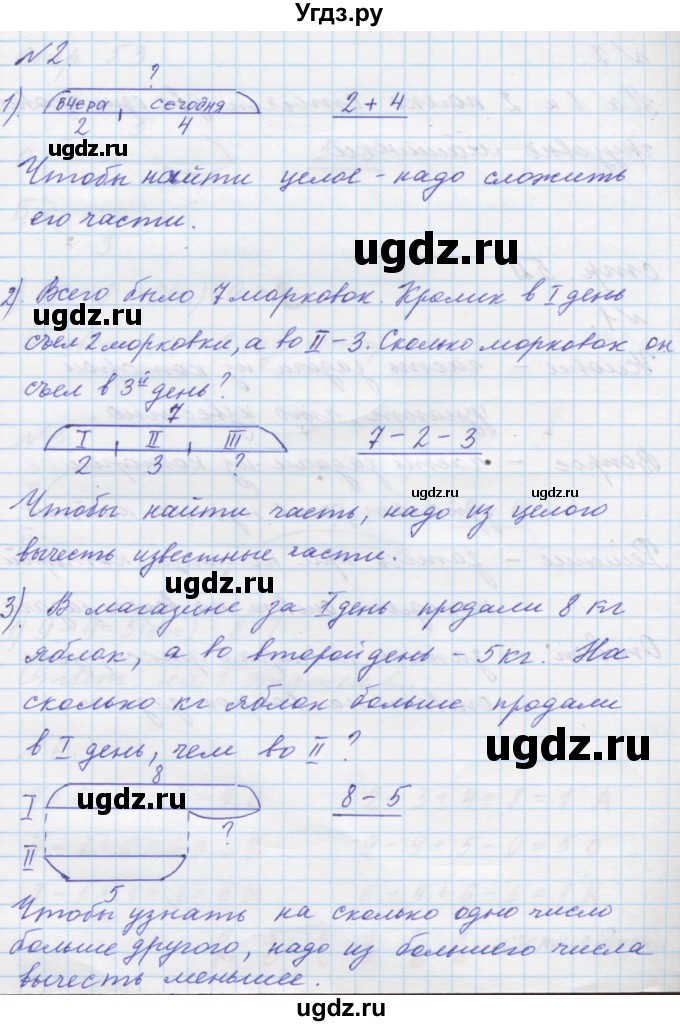 Угз.ру
№2.
?
1). вчера сегодня 2 + 4
2 4
ugdz.ru
Чтобы найти целое - надо сложить
его части.
ugdz.ru
2) Всего было 7 морковок. Кролик в I день
ugdz.ru
съел 2 морковки, а во II - 3. Сколько морковок он
съел в 3й день?
7
I II III 7 - 2 - 3
2 3 ?
ugdz.ru ugdz.ru
Чтобы найти часть, надо из целого
вычесть известные части.
ugdz.ru
3). В магазине за I день продали 8 кг
яблок, а во второй день - 5 кг. На
сколько кг яблок больше продали
ugdz.ru
в I день, чем во II ?
8
I ugdz.ru 8 - 5
?
II
5
Чтобы узнать на сколько одно число
больше другого, надо из большего числа
вычесть меньшее.
ugdz.ru